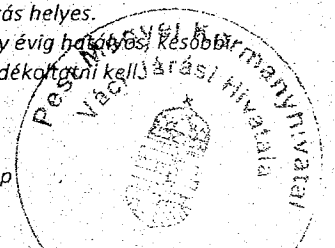 ás helyes.
y évig hatályos, későbbi
dékoltatni kell.
p
Pest Megyei Kormányhivatal
Váci Járási Hivatala